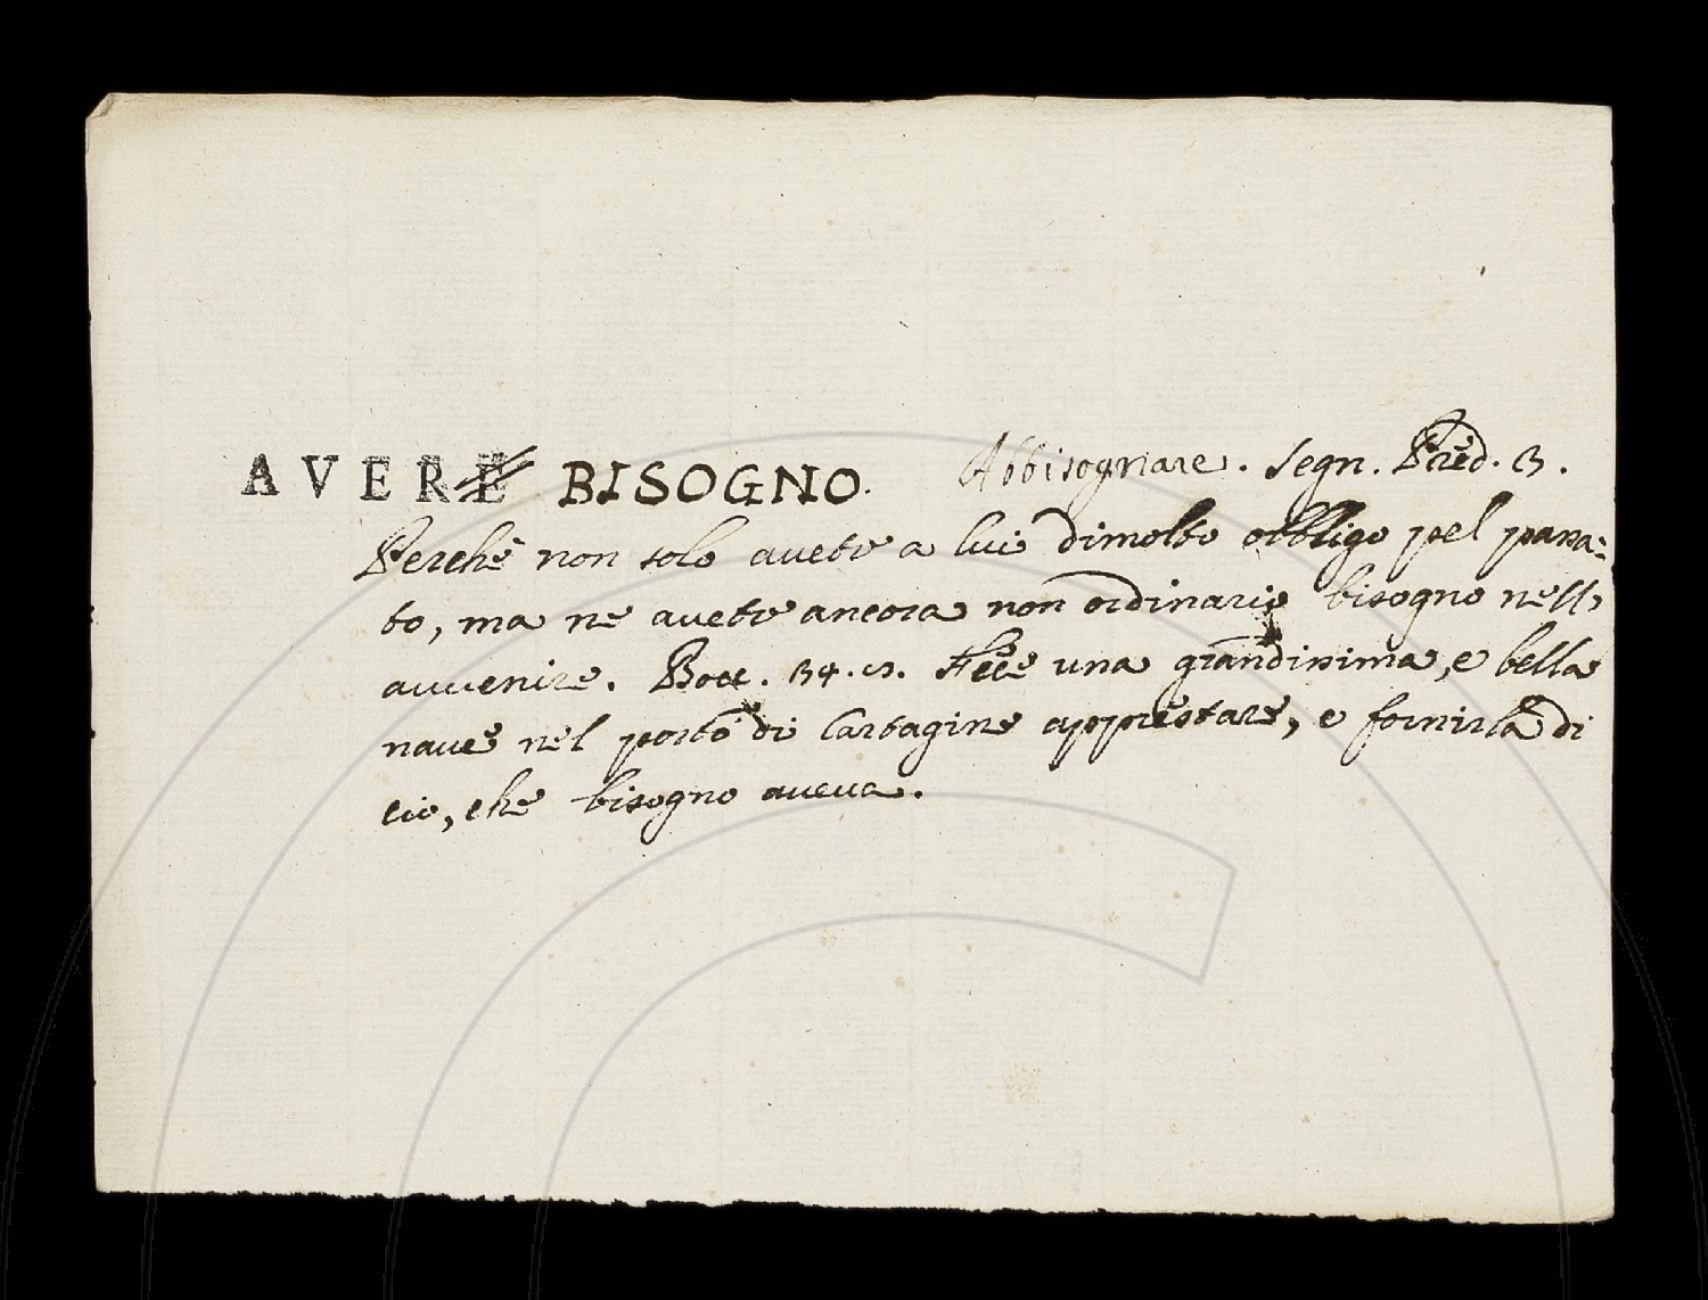 AVERE BISOGNO. Abbisognare. Segn. Pred. 3.
Perchè non solo avete a lui dimolto obbligo pel passa-
to, ma ne avete ancora non ordinario bisogno nell'
avvenire. Bocc. 34. 13. Fece una grandissima, e bella
nave nel porto di Cartagine apprestare, e fornirla di
ciò, che bisogno aveva.